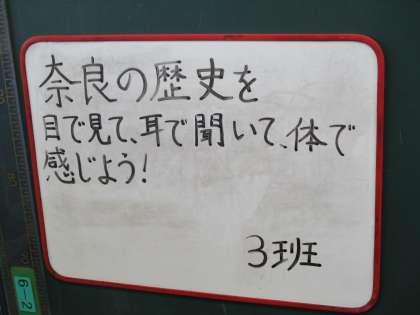 奈良の歴史を
目で見て、耳で聞いて、体で
感じよう!
3班
6-2